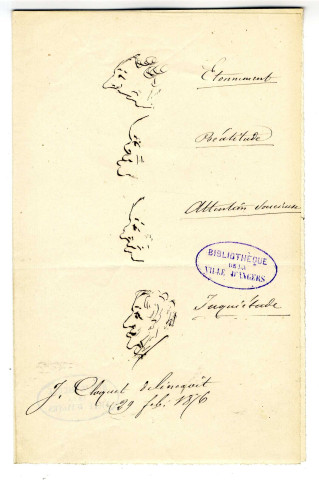 Etonnement
Béatitude
Attention soucieuse
BIBLIOTHÈQUE
DE LA
VILLE D'ANGERS
Inquiétude
J. Cloquet delineavit
29 feb. 1876